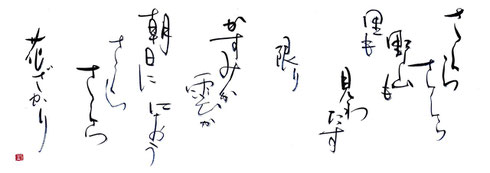 さくら
さくら
野山も
里も
見わたす
限り
かすみか
雲か
朝日に におう
さくら
さくら
花ざかり